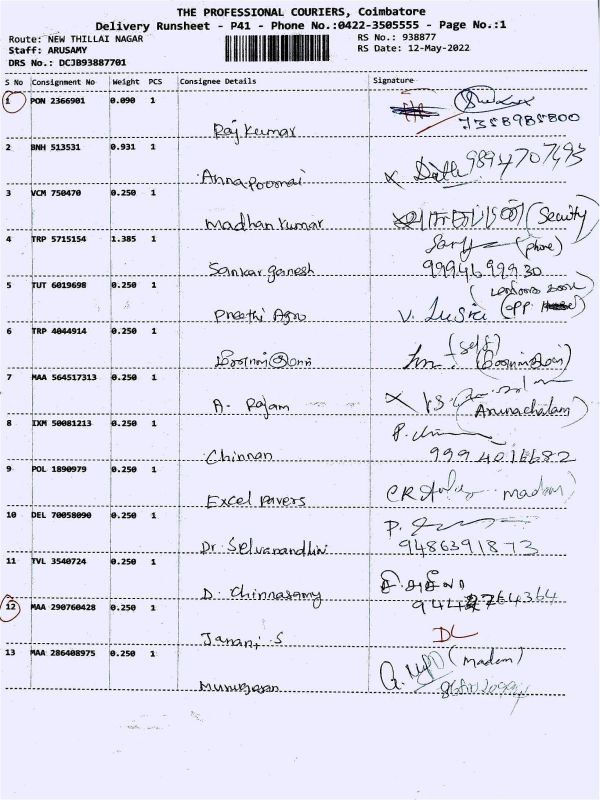 THE PROFESSIONAL COURIERS, Coimbatore
Delivery Runsheet - P41 - Phone No.:0422-3505555 - Page No.:1
Route: NEW THILLAI NAGAR
RS No.: 938877
Staff: ARUSAMY
RS Date: 12-May-2022
DRS No.: DCJB93887701
S No Consignment No Weight PCS Consignee Details Signature
1 PON 2366901 0.090 1
Raj Kumar 7358985800
2 BNH 513531 0.931 1
Annapoorani 9894707693
3 VCM 750470 0.250 1
Madhan Kumar (Security)
4 TRP 5715154 1.385 1
(phone)
Sankar ganesh 9994699930
5 TUT 6019698 0.250 1
Preethi Agro V. Lusia (opp.
6 TRP 4044914 0.250 1
(self)
7 MAA 564517313 0.250 1
A. Rajam (Arunachalam)
8 IXM 50081213 0.250 1
Chinnan 9994016682
9 POL 1890979 0.250 1
Excel pavers madam)
10 DEL 70058090 0.250 1
P.
Dr. Selvanandhini 9486391873
11 TVL 3540724 0.250 1
D. Chinnasamy
12 MAA 290760428 0.250 1
Janani S DL
13 MAA 286408975 0.250 1
(madam)
Murugesan